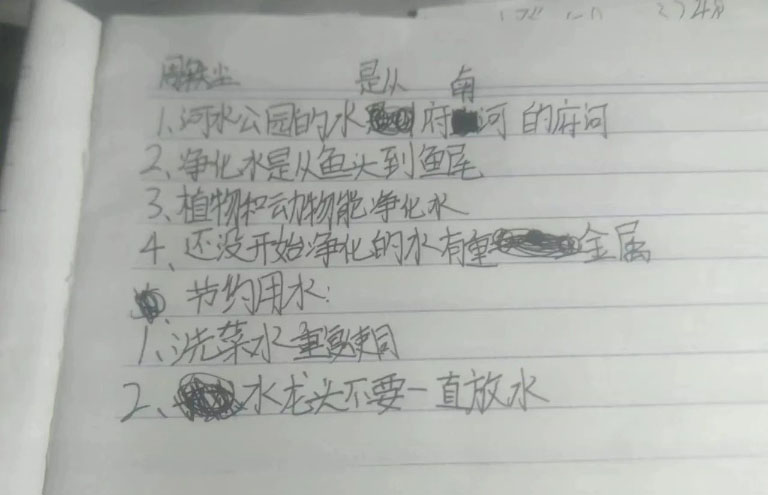 是从 南
1、河水公园的水 府河 的府河
2、净化水是从鱼头到鱼尾
3、植物和动物能净化水
4、还没开始净化的水有重金属
节约用水:
1、洗菜水重复使用
2、水龙头不要一直放水